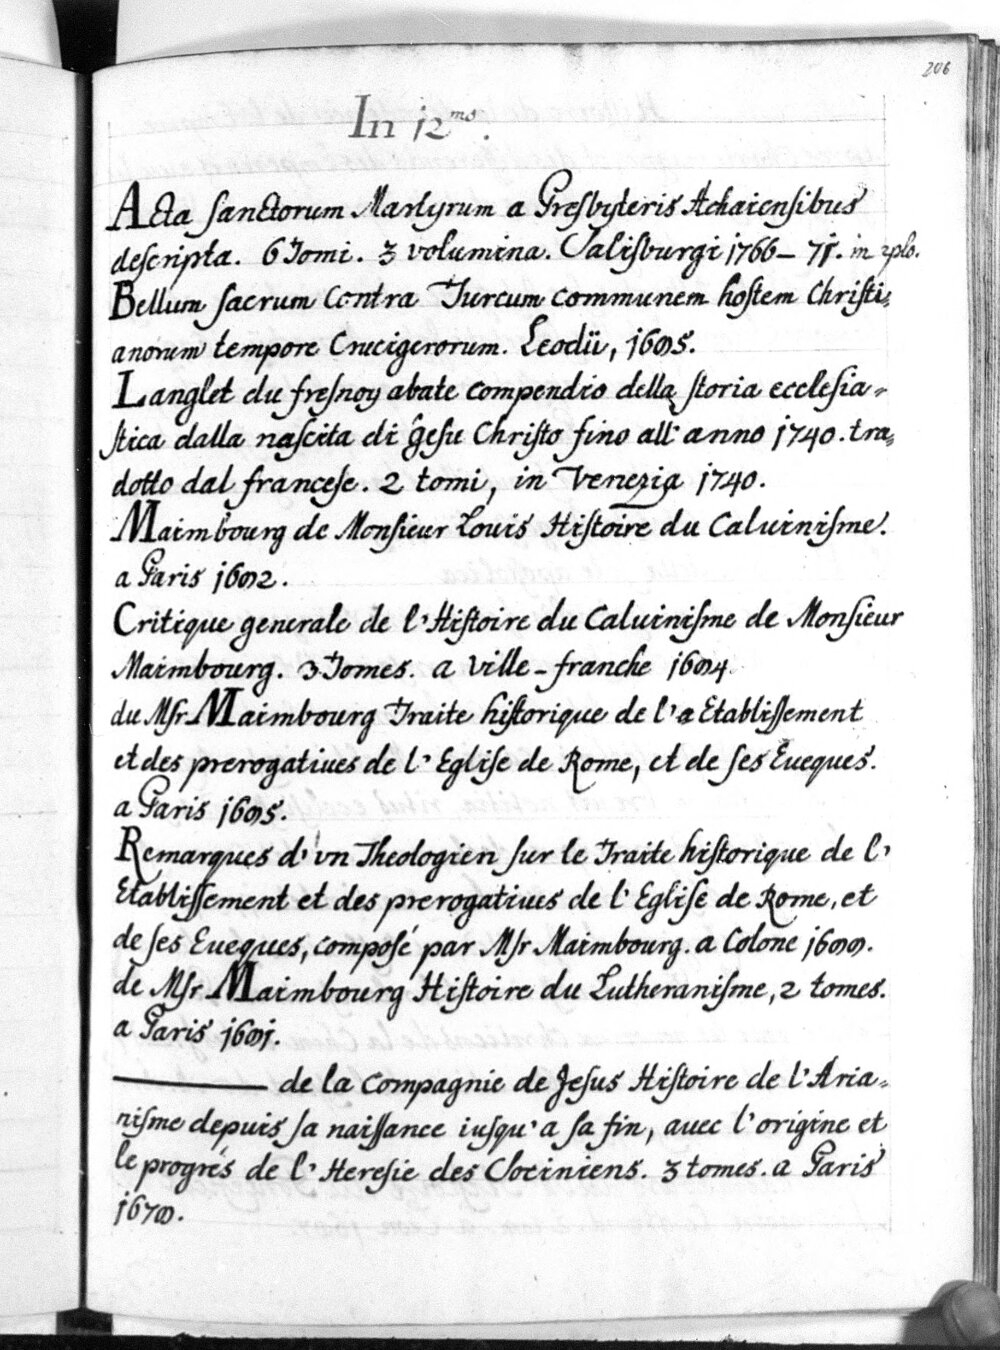 206
In 12ms.
Acta sanctorum Martyrum a Presbyteris Achaiensibus
descripta. 6 Tomi. 3 volumina. Salisburgi 1766–71. in 2plo.
Bellum sacrum contra Turcum communem hostem Christi=
anorum tempore Crucigerorum. Leodii, 1685.
Langlet du fresnoy abate compendio della storia ecclesia=
stica dalla nascita di Gesu Christo fino all' anno 1740. tra=
dotto dal francese. 2 tomi, in Venezia 1740.
Maimbourg de Monsieur Louis Histoire du Caluinisme.
a Paris 1682.
Critique generale de l'Histoire du Caluinisme de Monsieur
Maimbourg. 3 Tomes. a Ville-franche 1684.
du Msr Maimbourg Traite historique de l'a Etablissement
et des prerogatiues de l' Eglise de Rome, et de ses Eueques.
a Paris 1685.
Remarques d' vn Theologien sur le Traite historique de l'
Etablissement et des prerogatiues de l' Eglise de Rome, et
de ses Eueques, composé par Msr Maimbourg. a Colone 1688.
de Msr Maimbourg Histoire du Lutheranisme, 2 tomes.
a Paris 1681.
——— de la Compagnie de Jesus Histoire de l'Aria=
nisme depuis sa naissance iusqu'a sa fin, auec l'origine et
le progrés de l' Heresie des Sociniens. 3 tomes. a Paris
1678.